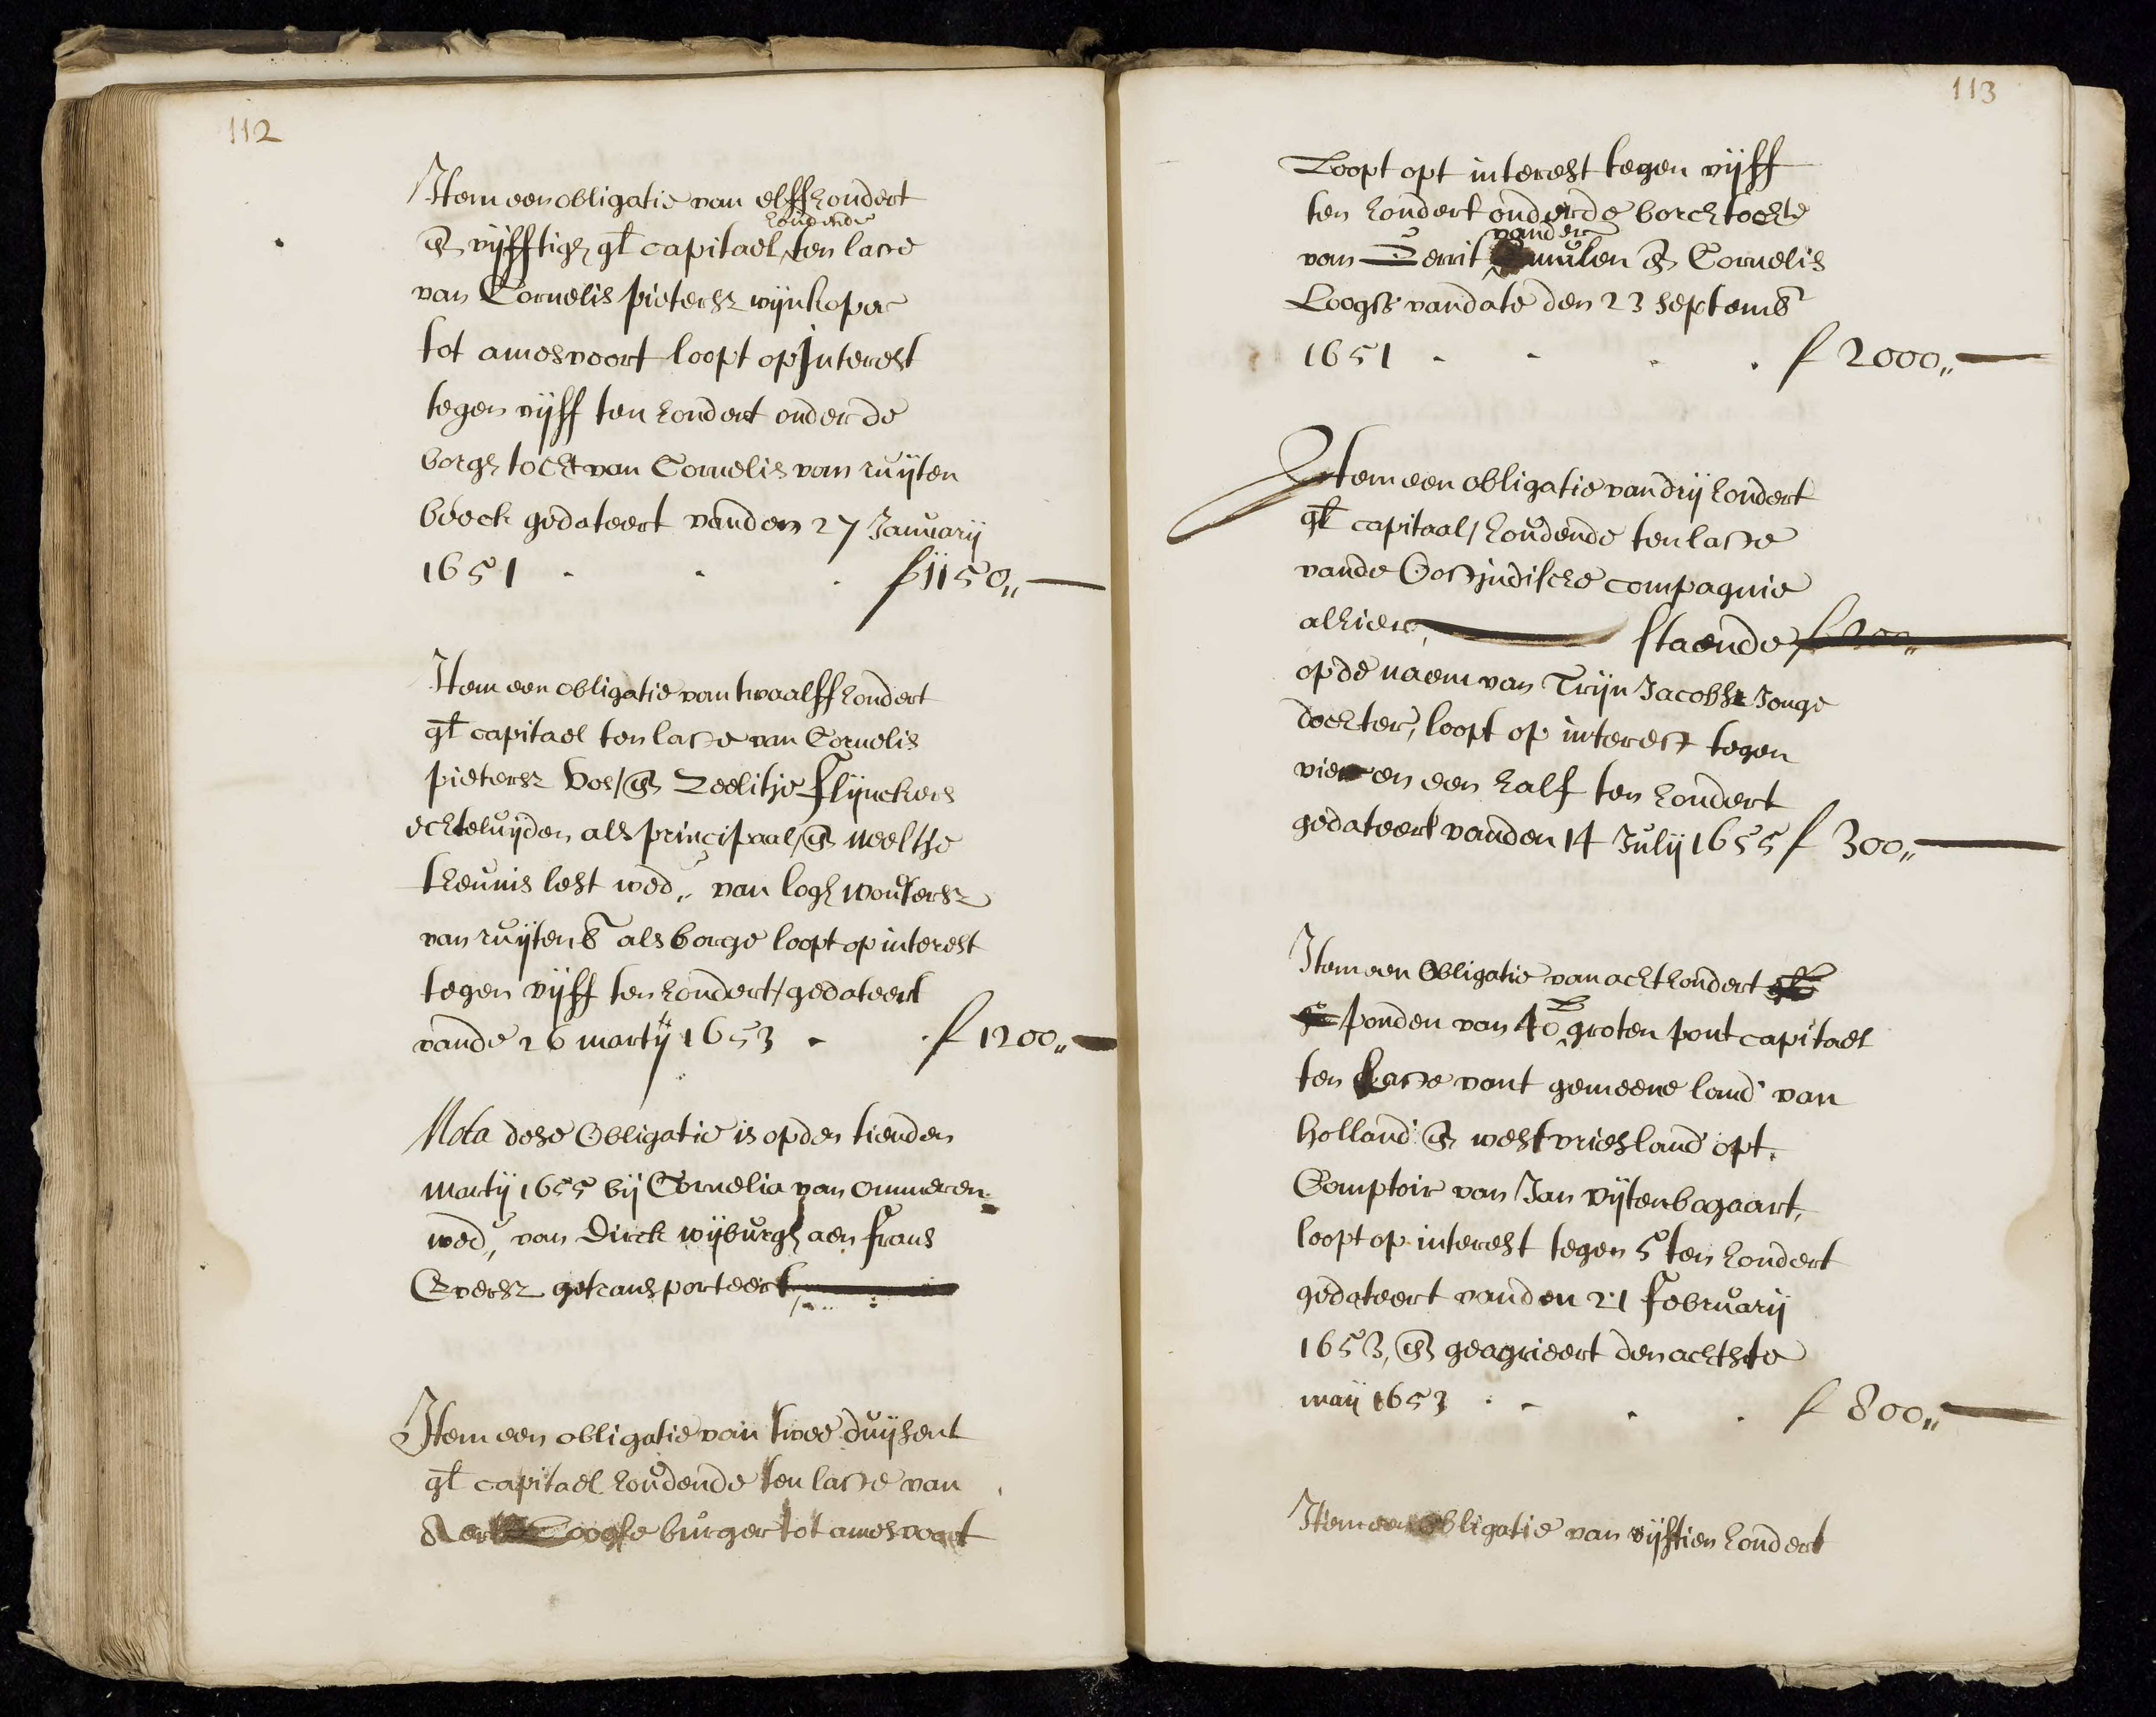 112
Item een obligatie van elffhondert
houdende
en vijfftigh gl capitael, ten laste
van Cornelis pietersz wijnkoper
tot amesvoort loopt op Interest
tegen vijff ten hondert onder de
borghtocht van Cornelis van ruijten
beeck gedateert vanden 27 Januarij
1651 - - - f 1150,, —
Item een obligatie van twaalffhondert
gl capitael ten laste van Cornelis
pietersz Vos / en Zeelitje Flijnckers
echteluijden als principaal / en Neeltje
theunis lest wed,, van logh woutersz
van ruijtenb als borge loopt op interest
tegen vijff ten hondert / gedateert
vande 26 martij 1653 - - f 1200,, —
Nota dese Obligatie is op den tienden
Martij 1655 bij Cornelia van Ommeren
wed,, van Dirck wijburgh aen frans
Eversz getransporteert,
Item een obligatie van twee duijsent
gl capitael houdende ten laste van
Aert Looghe burger tot amesvoort
113
Loopt opt interest tegen vijff
ten hondert onder de borchtochte
vander
van Gerrit mulen en Cornelis
Loogh vandate den 23 septemb
1651 - - - - f 2000,, —
Item een obligatie van drij hondert
gl capitaal / houdende ten laste
vande Oostindische compagnie
alhier, — staende f 300,,
op de naem van Trijn Jacobs Jonge
dochter, loopt op interest tegen
vier en een half ten hondert
gedateert vanden 14 Julij 1655 f 300,, —
Item een Obligatie van acht hondert gl
ponden van 40 groten pont capitael
ten Laste vant gemeene land van
Holland en westvriesland opt.
Comptoir van Jan vijtenbogaart,
loopt op interest tegen 5 ten hondert
gedateert vanden 21 februarij
1653, en geagrieert den achtste
maij 1653 - - - - f 800,, —
Item een obligatie van vijftien hondert